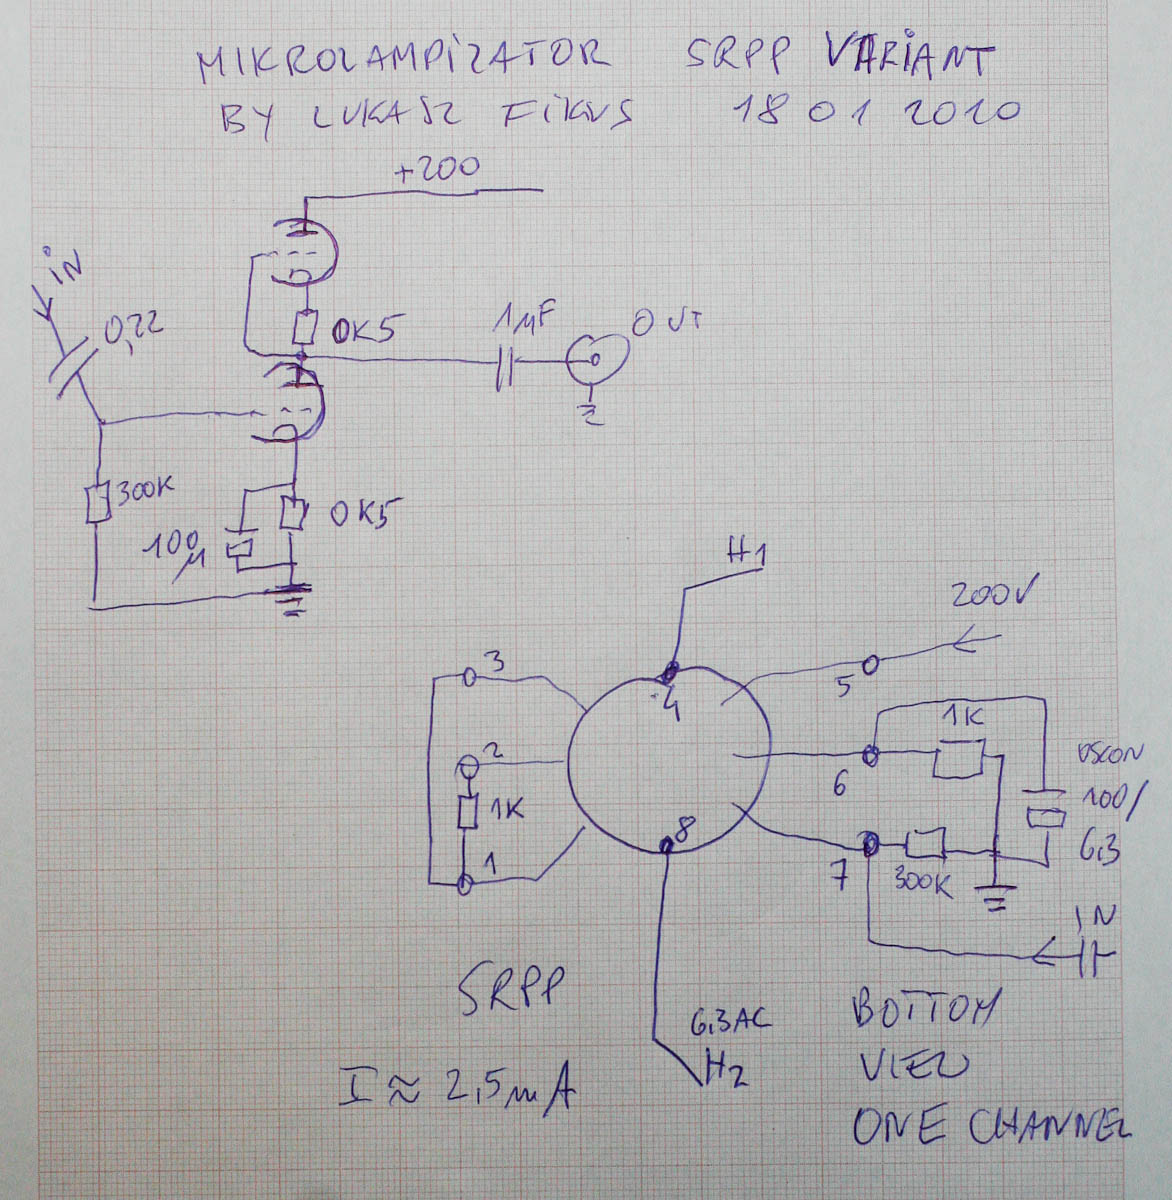 MIKROLAMPIZATOR SRPP VARIANT
BY LUKASZ FIKUS 18 01 2010
+200
iN
0,22
0K5
1µF
OUT
300K
100µ
0K5
H1
200V
3
4
5
2
1K
6
1K
OSCON
100/
6,3
1
8
7
300K
IN
SRPP
6,3AC
H2
I ≈ 2,5mA
BOTTOM
VIEW
ONE CHANNEL